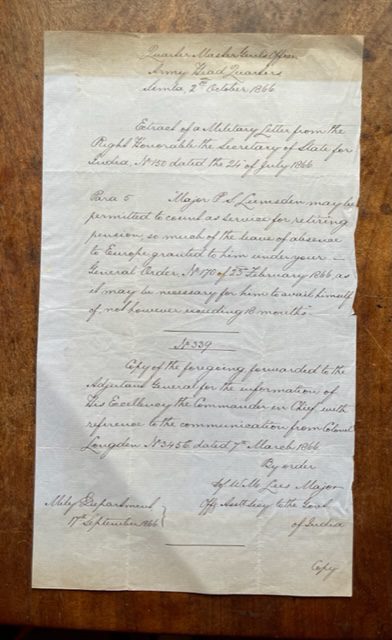 Quarter Master Genl's Office
Army Head Quarters
Simla, 2nd October 1866
Extract of a Military Letter from the
Right Honorable the Secretary of State for
India, No 150 dated the 24 of July 1866
Para 5 Major P. S. Lumsden may be
permitted to count as service for retiring
pension, so much of the leave of absence
to Europe granted to him under your
General Order No 170 of 23rd February 1866, as
it may be necessary for him to avail himself
of, not however exceeding 18 months"
No 339
Copy of the foregoing forwarded to the
Adjutant General for the information of
His Excellency the Commander in Chief with
reference to the communication from Colonel
Longden No 345 dated 7th March 1866
By order
W. Lees Major
Offg Asst Secy to the Govt
of India
Mily Department
17th September 1866
Copy